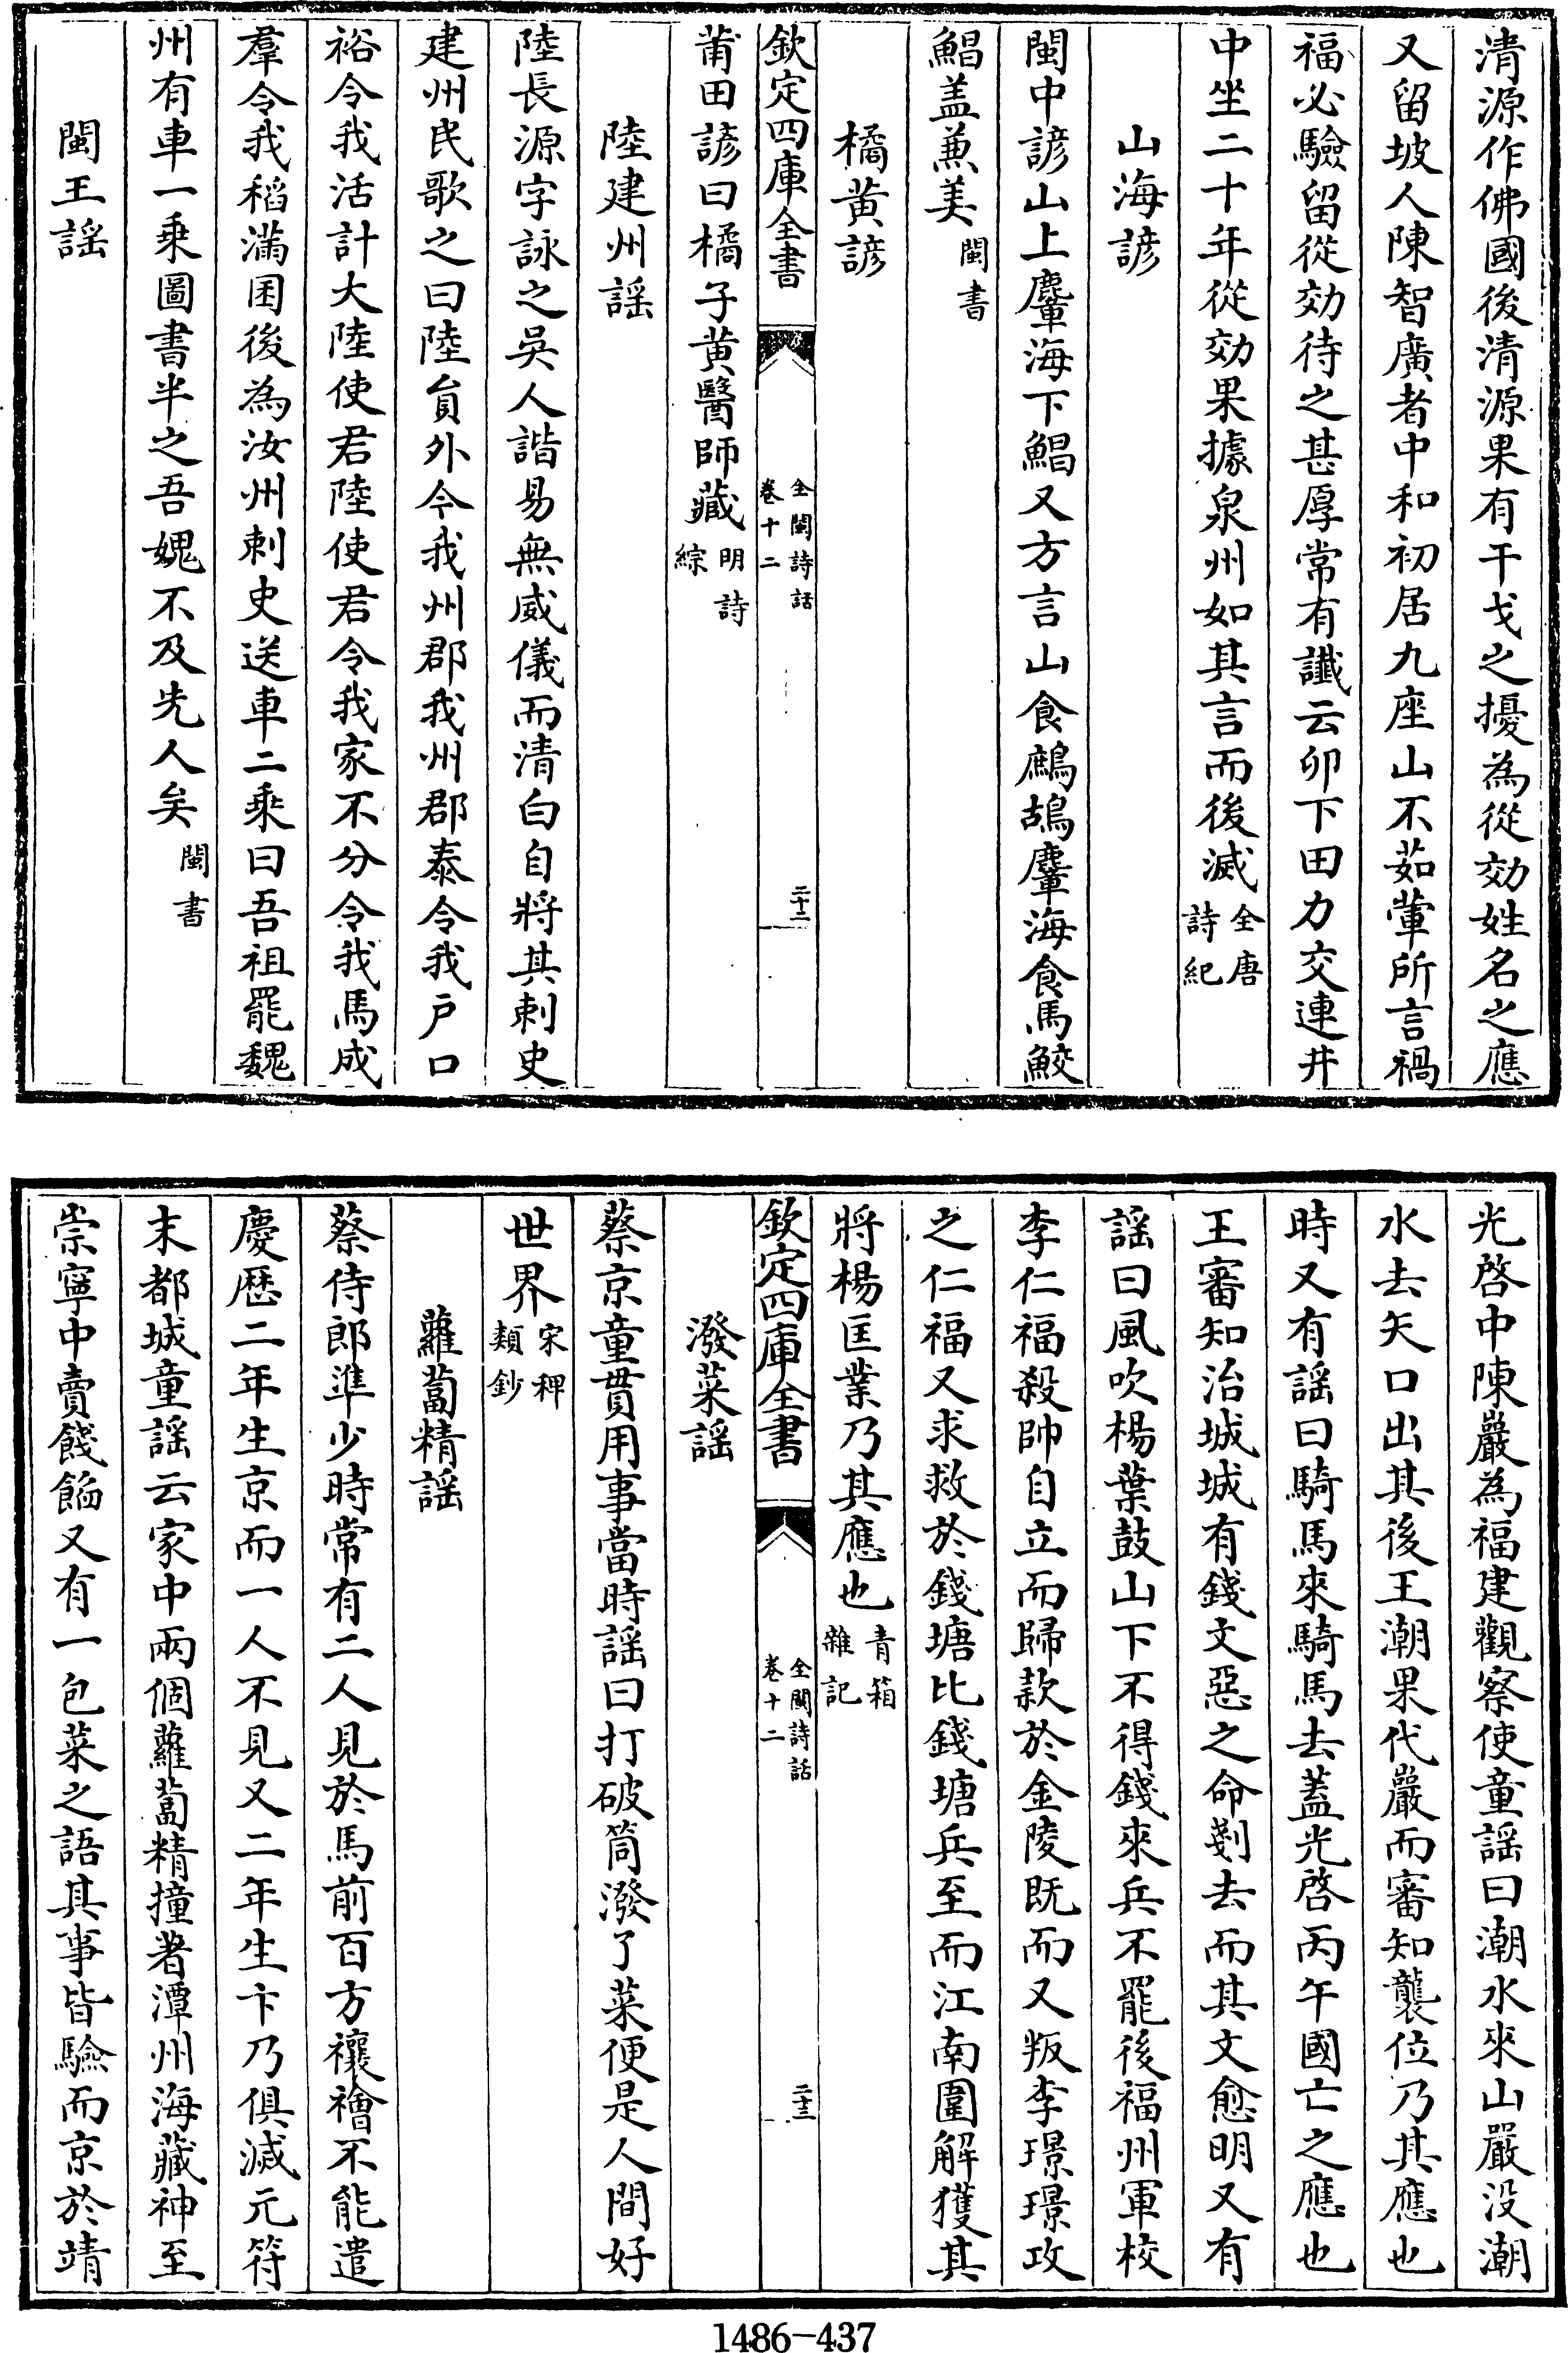 清源作佛國後清源果有干戈之擾為從効姓名之應
又留坡人陳智廣者中和初居九座山不茹葷所言禍
福必驗留從効待之甚厚常有讖云卯下田力交連井
中坐二十年從効果據泉州如其言而後滅全唐詩紀
山海諺
閩中諺山上麞海下鯧又方言山食鷓鴣麞海食馬鮫
鯧盖兼美閩書
橘黄諺
欽定四庫全書 全閩詩話 卷十二 二十二
莆田諺曰橘子黄醫師藏明詩綜
陸建州謡
陸長源字詠之吳人諧易無威儀而清白自將其刺史
建州民歌之曰陸貟外令我州郡我州郡泰令我戶口
裕令我活計大陸使君陸使君令我家不分令我馬成
羣令我稻滿囷後為汝州刺史送車二乘曰吾祖罷魏
州有車一乘圖書半之吾媿不及先人矣閩書
閩王謡
光啓中陳巖為福建觀察使童謡曰潮水來山巖没潮
水去矢口出其後王潮果代巖而審知襲位乃其應也
時又有謡曰騎馬來騎馬去蓋光啓丙午國亡之應也
王審知治城城有錢文惡之命剗去而其文愈明又有
謡曰風吹楊葉鼓山下不得錢來兵不罷後福州軍校
李仁福殺帥自立而歸款於金陵既而又叛李璟璟攻
之仁福又求救於錢塘比錢塘兵至而江南圍解獲其
將楊匡業乃其應也青箱雜記
欽定四庫全書 全閩詩話 卷十二 二十三
潑菜謡
蔡京童貫用事當時謡曰打破筒潑了菜便是人間好
世界宋稗類鈔
蘿蔔精謡
蔡侍郎準少時常有二人見於馬前百方禳禬不能遣
慶歷二年生京而一人不見又二年生卞乃俱滅元符
末都城童謡云家中兩個蘿蔔精撞着潭州海藏神至
崇寧中賣餕餡又有一包菜之語其事皆驗而京於靖
1486-437